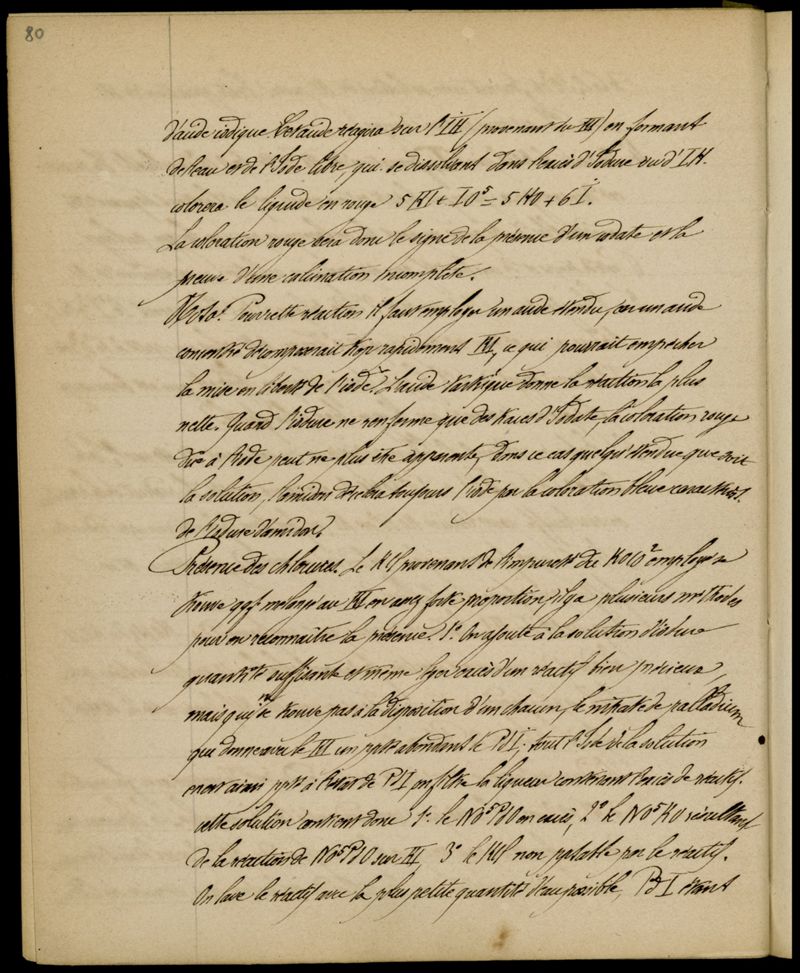 80
d'acide iodique. Cet acide réagira sur l'IH (provenant du KI) en formant
de l'eau et de l'Iode libre, qui se dissolvant dans l'excès d'Iodure ou d'IH.
colorera le liquide en rouge 5 HI + IO⁵ = 5 HO + 6 I.
La coloration rouge sera donc le signe de la présence d'un iodate et la
preuve d'une calcination incomplète.
Nota. Pour cette réaction il faut employer un acide étendu, car un acide
concentré décomposerait trop rapidement IH, ce qui pourrait empêcher
la mise en liberté de l'iode. L'acide tartrique donne la réaction la plus
nette. Quand l'iodure ne renferme que des traces d'Iodate, la coloration rouge
due à l'Iode peut ne plus être apparente, dans ce cas quelqu'étendue que soit
la solution, l'amidon décèlera toujours l'iode par la coloration bleue caractérist.
de l'Iodure d'amidon.
Présence des chlorures. Le KCl provenant de l'impureté du KOCO² employé se
trouve qqf. mélangé au KI en assez forte proportion, il y a plusieurs méthodes
pour en reconnaître la présence. 1° On ajoute à la solution d'iodure
quantité suffisante et même léger excès d'un réactif bien précieux,
mais qui ne se trouve pas à la disposition d'un chacun, le nitrate de palladium
qui donne avec le KI un ppté abondant de PdI; tout l'Iode de la solution
étant ainsi ppté à l'état de PdI, on filtre la liqueur contenant l'excès de réactif.
cette solution contient donc 1° le NO⁵PdO en excès, 2° le NO⁵KO résultant
de la réaction de NO⁵PdO sur KI, 3° le KCl non pptable par le réactif.
On lave le réactif avec la plus petite quantité d'eau possible, PdI étant